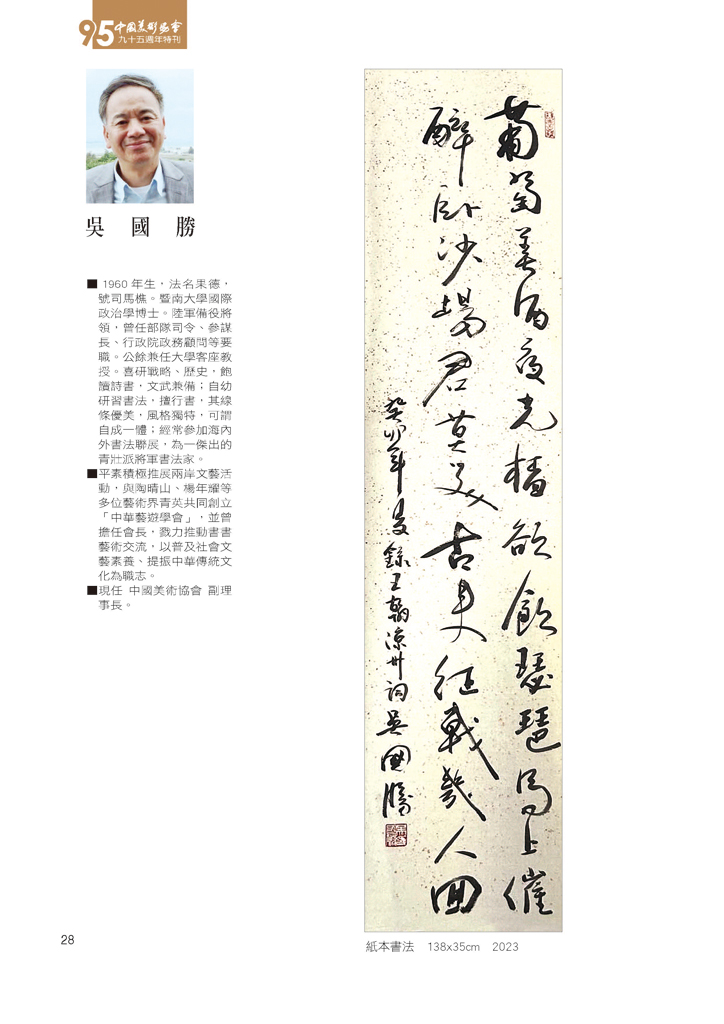 95中國美術協會
九十五週年特刊
吳國勝
■ 1960 年生，法名果德，
號司馬樵。暨南大學國際
政治學博士。陸軍備役將
領，曾任部隊司令、參謀
長、行政院政務顧問等要
職。公餘兼任大學客座教
授。喜研戰略、歷史，飽
讀詩書，文武兼備；自幼
研習書法，擅行書，其線
條優美，風格獨特，可謂
自成一體；經常參加海內
外書法聯展，為一傑出的
青壯派將軍書法家。
■平素積極推展兩岸文藝活
動，與陶晴山、楊年耀等
多位藝術界青英共同創立
「中華藝遊學會」，並曾
擔任會長，戮力推動書書
藝術交流，以普及社會文
藝素養、提振中華傳統文
化為職志。
■現任 中國美術協會 副理
事長。
葡萄美酒夜光桮欲飲琵琶馬上催
醉臥沙場君莫笑古來征戰幾人回
癸卯年夏錄王翰涼州詞吳國勝
紙本書法 138x35cm 2023
28